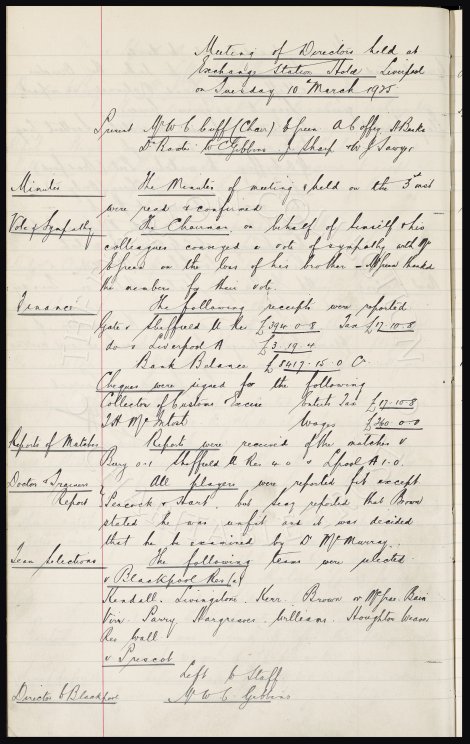 Meeting of Directors held at
Exchange Station Hotel Liverpool
on Tuesday 10 March 1925
Present Mr W C Cuff (Chair) E Green A Coffey H Banks
Dr Baxter W C Gibbins J Sharp & W J Sawyer
Minutes The Minutes of meeting held on the 3rd inst
were read & confirmed
Vote of Sympathy The Chairman on behalf of himself & his
colleagues conveyed a vote of sympathy with Mr
E Green on the loss of his brother - Mr Green thanked
the members for their vote.
Finance The following receipts were reported
Gate v Sheffield U Res £394.0.8 Tax £17.10.8
do v Liverpool A £3.19.4
Bank Balance £8417.15.0 Cr
Cheques were signed for the following
Collector of Customs Excise Ents Tax £17.10.8
T H McIntosh Wages £260.0.0
Reports of Matches Reports were received of the matches v
Bury 0-1 Sheffield U Res 4.0 v Lpool A 1-0.
Doctor & Trainers All players were reported fit except
Report Peacock & Hart but reported that Brown
stated he was unfit and it was decided
that he be examined by Dr McMurray.
Team Selections The following teams were selected
v Blackpool Res
Kendall. Livingstone. Kerr. Brown or McGrae. Bain
Virr. Parry. Hargreaves. Williams. Houghton. Weaver
Res Wall
v Prescot
Left to Staff.
Director to Blackpool Mr W C Gibbins